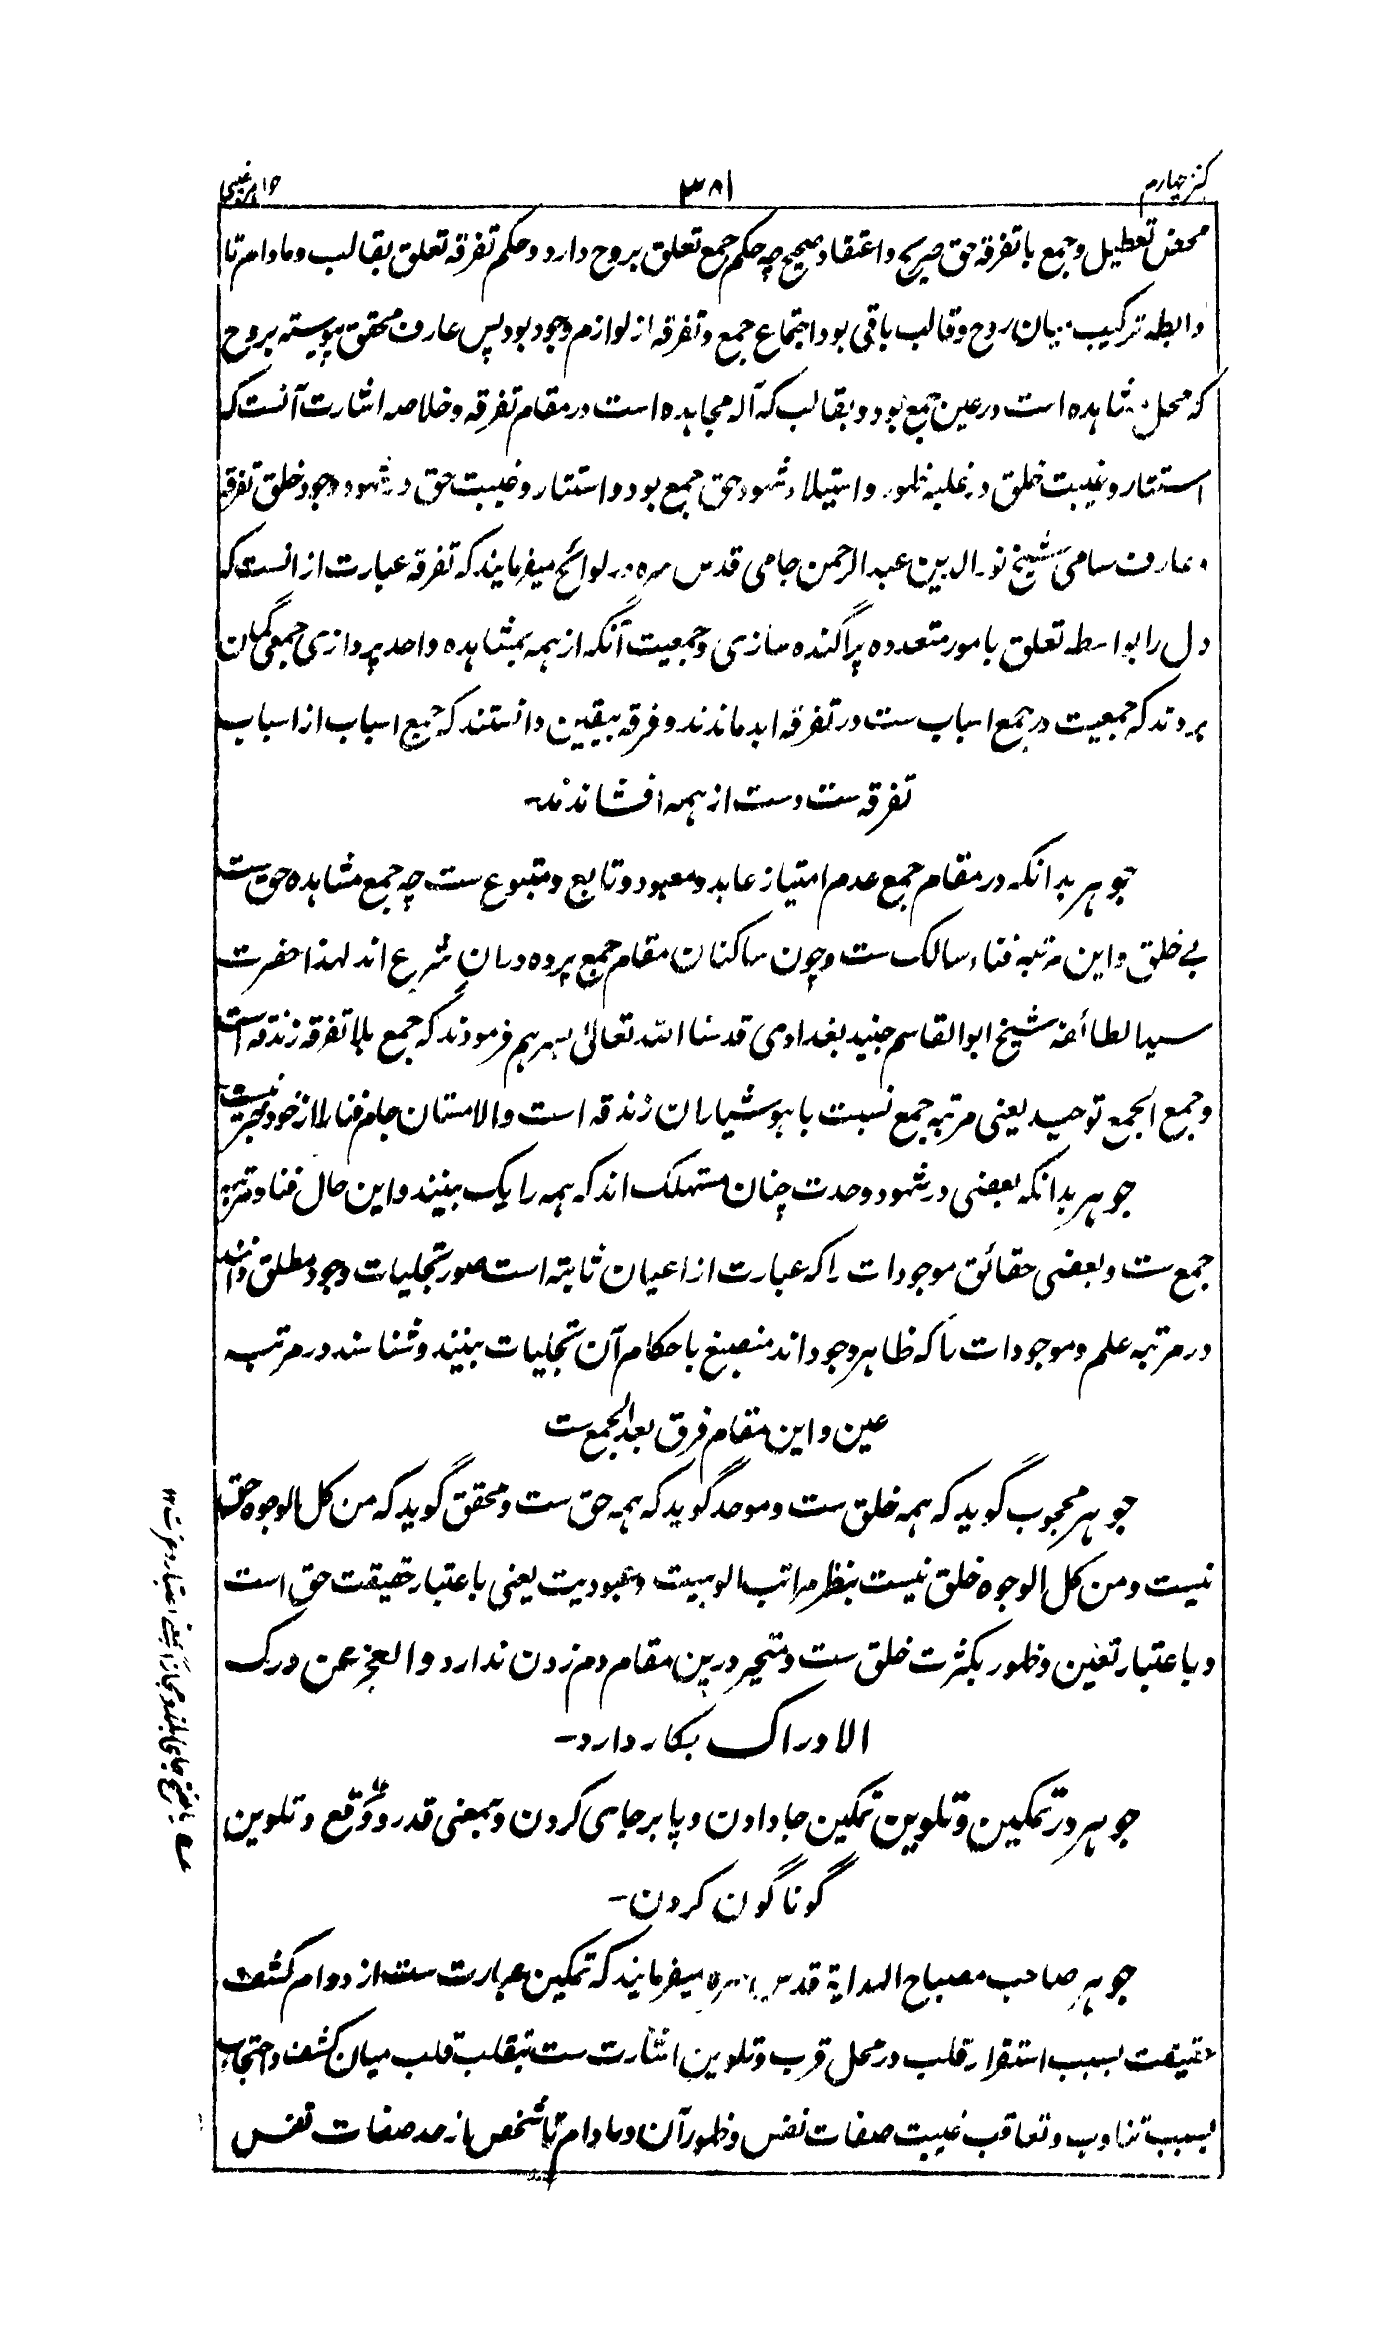 کنز چهارم
۳۸۱
جواهر غیبی
محض تعطیل و جمع با تفرقه حق صریح و اعتقاد صحیح چه حکم جمع تعلق بروح دارد و حکم تفرقه تعلق بقالب و مادام تا
رابطه ترکیب میان روح و قالب باقی بود اجتماع جمع و تفرقه از لوازم وجود بود پس عارف محقق پیوسته بروح
که محل مشاهده است در عین جمع بود و بقالب که آله مجاهده است در مقام تفرقه و خلاصه اشارت آنست که
استتار و غیبت خلق در غلبه ظهور و استیلاء شهود حق جمع بود و استتار و غیبت حق در شهود وجود خلق تفرقه
عارف سامی شیخ نورالدین عبدالرحمن جامی قدس سره در لوائح میفرمایند که تفرقه عبارت از انست که
دل را بواسطه تعلق بامور متعدده پراگنده سازی و جمعیت آنکه از همه بمشاهده واحد پردازی جمعی گمان
بردند که جمعیت در جمع اسباب ست در تفرقه ابد ماندند و فرقه بیقین دانستند که جمع اسباب از اسباب
تفرقه ست دست از همه افشاندند-
جوهر بدانکه در مقام جمع عدم امتیاز عابد و معبود و تابع و متبوع ست چه جمع مشاهده حق ست
بے خلق و این مرتبه فناء سالک ست و چون ساکنان مقام جمع پرده دران شرع اند لهذا حضرت
سید الطائفه شیخ ابو القاسم جنید بغدادی قدسنا الله تعالیٰ بسرهم فرمودند که جمع بلا تفرقه زندقه است
و جمع الجمع توحید یعنی مرتبه جمع نسبت با هوشیاران زندقه است والا مستان جام فنا را از خود خبر نیست
جوهر بدانکه بعضی در شهود وحدت چنان مستهلک اند که همه را یک بینند و این حال فنا و مرتبه
جمع ست و بعضی حقائق موجودات را که عبارت از اعیان ثابته است صور تجلیات وجود مطلق دانند
در مرتبه علم و موجودات را که ظاهر وجود اند منصبغ باحکام آن تجلیات بینند و شناسند در مرتبه
عین و این مقام فرق بعد الجمع ست
جوهر محجوب گوید که همه خلق ست و موحد گوید که همه حق ست و محقق گوید که من کل الوجوه حق
نیست و من کل الوجوه خلق نیست بنظر مراتب الوهیت و عبودیت یعنی باعتبار حقیقت حق است
و باعتبار تعین و ظهور بکثرت خلق ست و متحیر درین مقام دم زدن ندارد و العجز عن درک
الادراک بکار دارد-
جوهر در تمکین و تلوین تمکین جا دادن و پا برجای کردن و بمعنی قدر و توقع و تلوین
گوناگون کردن-
جوهر صاحب مصباح الهدایة قدس سره میفرمایند که تمکین عبارت ست از دوام کشف
حقیقت بسبب استقرار قلب در محل قرب و تلوین اشارت ست بتقلب قلب میان کشف و احتجاب
بسبب تناوب و تعاقب غیبت صفات نفس و ظهور آن و مادام تا شخص از حد صفات نفس